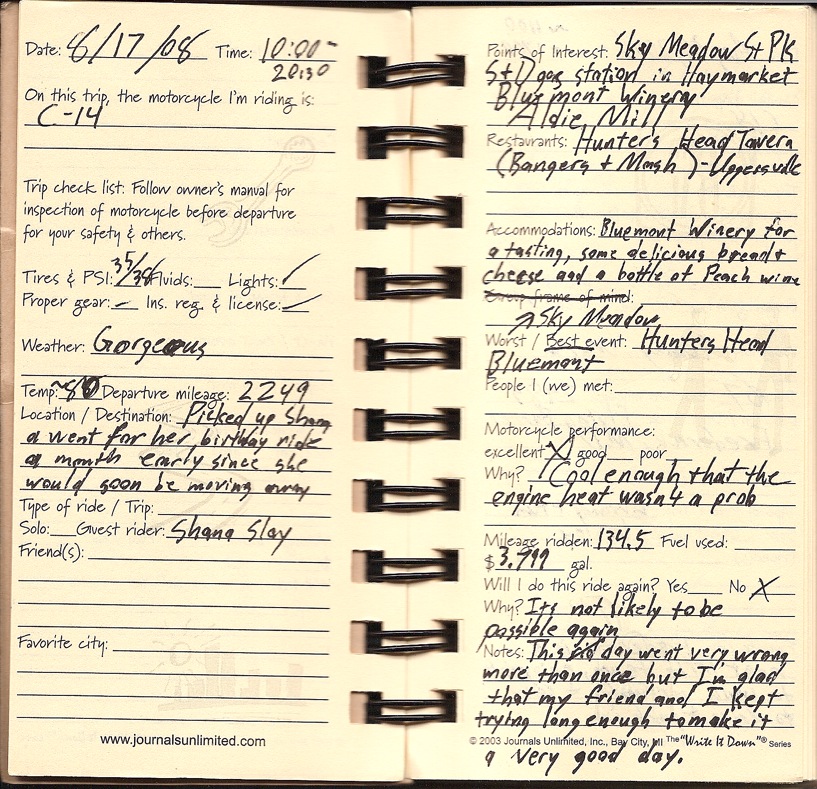 Date: 8/17/08 Time: 10:00-
20:30
On this trip, the motorcycle I'm riding is:
C-14
Trip check list: Follow owner's manual for
inspection of motorcycle before departure
for your safety & others.
Tires & PSI: 35/38 Fluids: Lights: ✓
Proper gear: Ins. reg. & license: ✓
Weather: Gorgeous
Temp: ~80 Departure mileage: 2249
Location / Destination: Picked up Shana
a went for her birthday ride
a month early since she
would soon be moving away
Type of ride / Trip:
Solo: Guest rider: Shana Slay
Friend(s):
Favorite city:
www.journalsunlimited.com
Points of Interest: Sky Meadow St Pk
gas station in Haymarket
Bluemont Winery
Aldie Mill
Restaurants: Hunter's Head Tavern
(Bangers + Mash) - Uppersville
Accommodations: Bluemont Winery for
a tasting, some delicious bread +
cheese and a bottle of Peach wine
Group frame of mind:
Sky Meadow
Worst / Best event: Hunters Head
Bluemont
People I (we) met:
Motorcycle performance:
excellent X good poor
Why? Cool enough that the
engine heat wasn't a prob
Mileage ridden: 134.5 Fuel used:
$3.999 gal.
Will I do this ride again? Yes No X
Why? Its not likely to be
possible again
Notes: This day went very wrong
more than once but I'm glad
that my friend and I kept
trying long enough to make it
© 2003 Journals Unlimited, Inc., Bay City, MI The "Write It Down"® Series
a very good day.